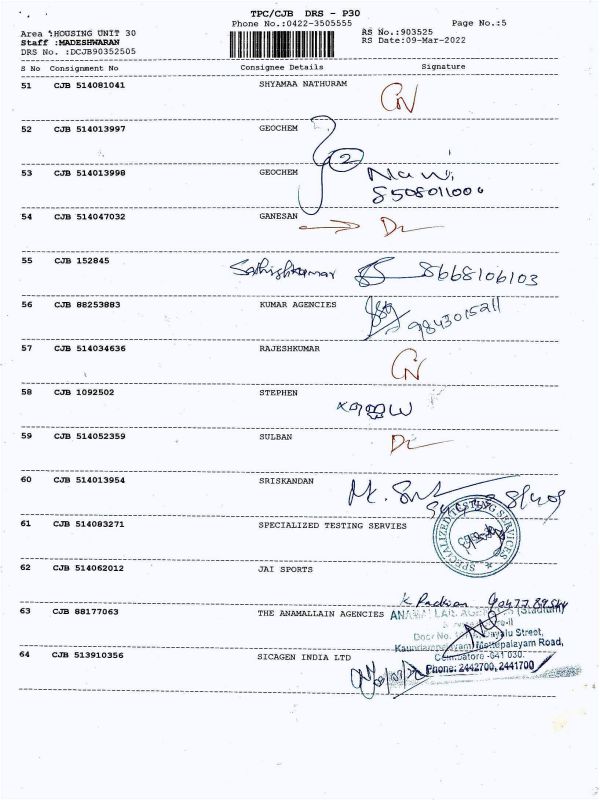 TPC/CJB DRS - P30
Phone No.:0422-3505555
Page No.:5
Area :HOUSING UNIT 30
RS No.:903525
Staff :MADESHWARAN
RS Date:09-Mar-2022
DRS No. :DCJB90352505
S No Consignment No Consignee Details Signature
51 CJB 514081041 SHYAMAA NATHURAM
CN
52 CJB 514013997 GEOCHEM
2
53 CJB 514013998 GEOCHEM
54 CJB 514047032 GANESAN
55 CJB 152845
Sathishkumar 8668106103
56 CJB 88253883 KUMAR AGENCIES
9843015211
57 CJB 514034636 RAJESHKUMAR
CN
58 CJB 1092502 STEPHEN
59 CJB 514052359 SULBAN
60 CJB 514013954 SRISKANDAN
61 CJB 514083271 SPECIALIZED TESTING SERVIES
SPECIALIZED TESTING SERVICES
62 CJB 514062012 JAI SPORTS
63 CJB 88177063 THE ANAMALLAIN AGENCIES
(Stadium)
Door No. Street,
Mettupalayam Road,
Coimbatore -641 030.
64 CJB 513910356 SICAGEN INDIA LTD
Phone: 2442700, 2441700